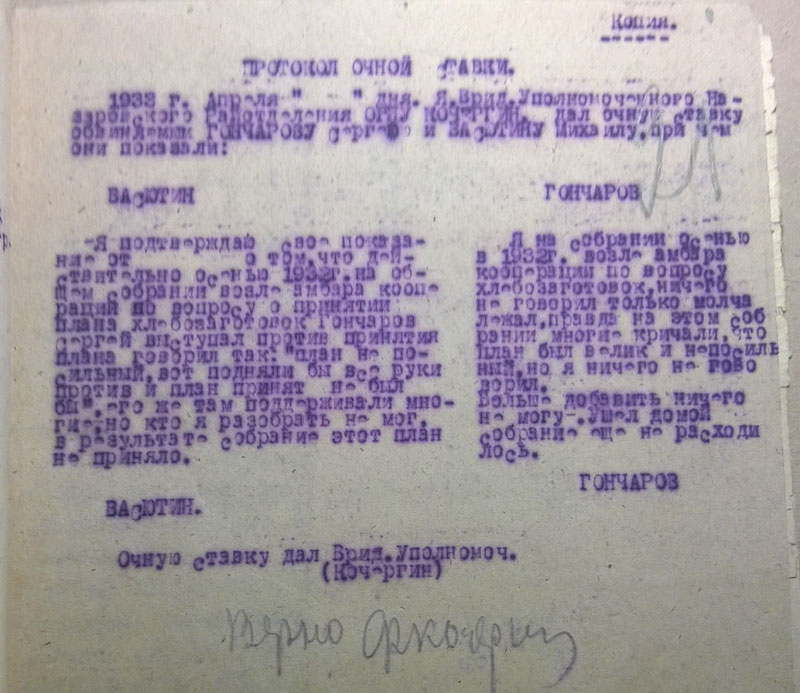 Копия.
ПРОТОКОЛ ОЧНОЙ СТАВКИ.
1933 г. Апреля " " дня. Я.Врид.Уполномоченного На-
заровского Райотделения ОГПУ КОЧЕРГИН, дал очную ставку
обвиняемым ГОНЧАРОВУ Сергею и ВАСЮТИНУ Михаилу,при чем
они показали:
ВАСЮТИН
-Я подтверждаю свое показа-
ние от о том,что дей-
ствительно осенью 1932г.на об-
щем собрании возле амбара коопе
рации по вопросу о принятии
плана хлебозаготовок Гончаров
Сергей выступал против принятия
плана говорил так:"план не по-
сильный,вот подняли бы все руки
против и план принят не был
бы",его же там поддерживали мно-
гие,но кто я разобрать не мог,
в результате собрание этот план
не приняло.
ВАСЮТИН.
ГОНЧАРОВ
Я на собрании осенью
в 1932г. возле амбара
кооперации по вопросу
хлебозаготовок,ничего
не говорил только молча
лежал,правда на этом соб
рании многие кричали,что
план был велик и непосиль
ный,но я ничего не гово
ворил.
Больше добавить ничего
не могу-.Ушел домой
собрание еще не расходи
лось.
ГОНЧАРОВ
Очную ставку дал Врид.Уполномоч.
(Кочергин)
Верно